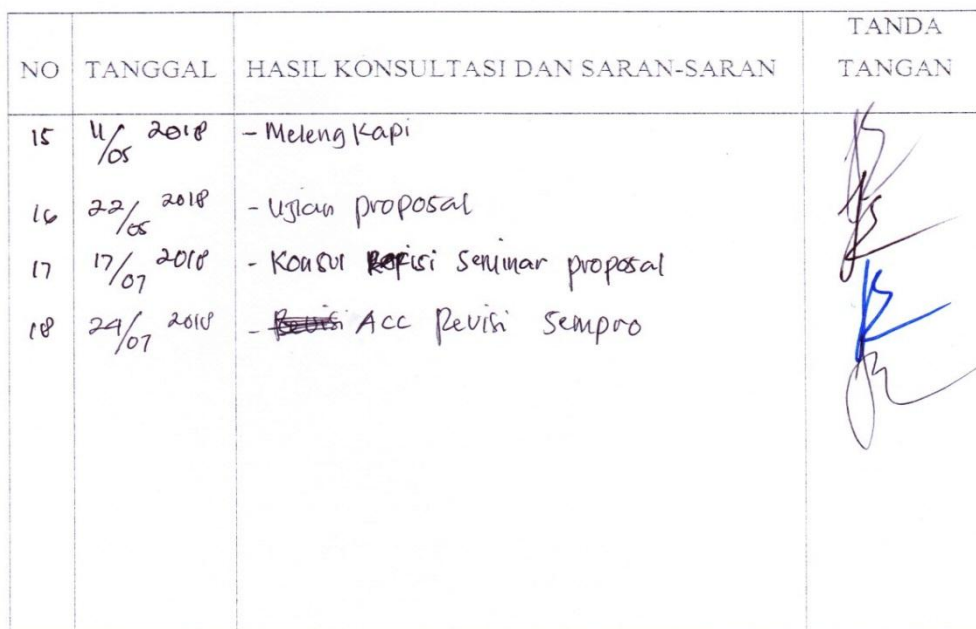 NO TANGGAL HASIL KONSULTASI DAN SARAN-SARAN TANDA TANGAN
15 11/05 2018 - Melengkapi
16 22/05 2018 - Ujian proposal
17 17/07 2018 - Konsul Refisi Seminar proposal
18 24/07 2018 - Revisi Acc Revisi Sempro